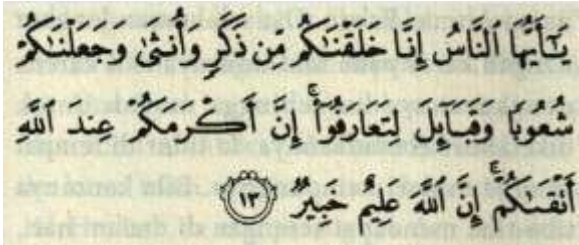 يَٰٓأَيُّهَا ٱلنَّاسُ إِنَّا خَلَقْنَٰكُم مِّن ذَكَرٍ وَأُنثَىٰ وَجَعَلْنَٰكُمْ
شُعُوبًا وَقَبَآئِلَ لِتَعَارَفُوٓا۟ ۚ إِنَّ أَكْرَمَكُمْ عِندَ ٱللَّهِ
أَتْقَىٰكُمْ ۚ إِنَّ ٱللَّهَ عَلِيمٌ خَبِيرٌ ١٣